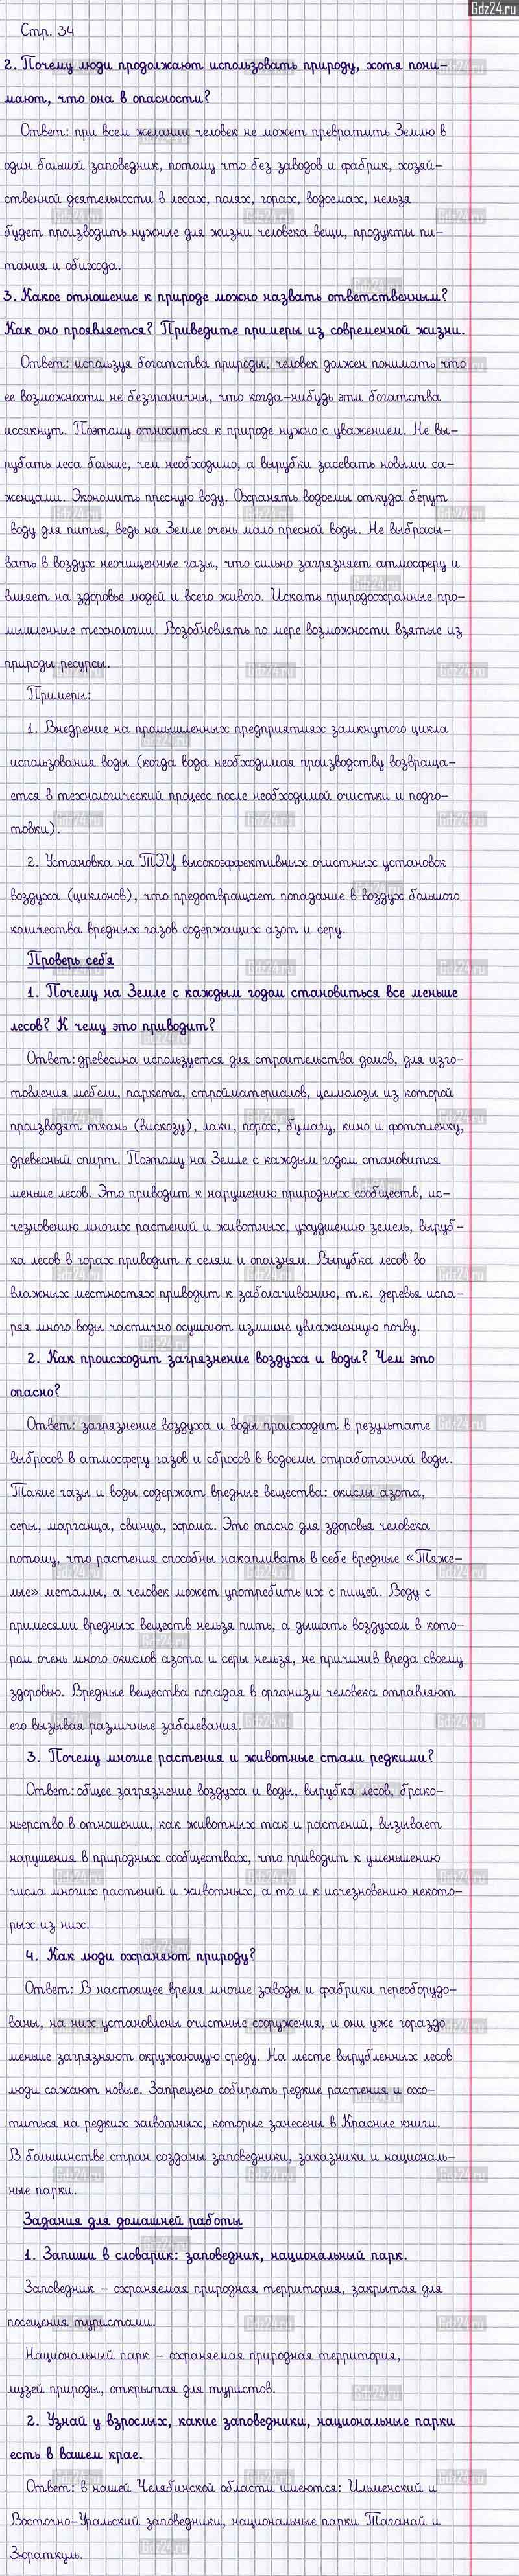 Gdz24.ru
Стр. 34
2. Почему люди продолжают использовать природу, хотя пони-
мают, что она в опасности?
Ответ: при всем желании человек не может превратить Землю в
один большой заповедник, потому что без заводов и фабрик, хозяй-
ственной деятельности в лесах, полях, горах, водоемах, нельзя
будет производить нужные для жизни человека вещи, продукты пи-
тания и обихода.
3. Какое отношение к природе можно назвать ответственным?
Как оно проявляется? Приведите примеры из современной жизни.
Ответ: используя богатства природы, человек должен понимать что
ее возможности не безграничны, что когда-нибудь эти богатства
иссякнут. Поэтому относиться к природе нужно с уважением. Не вы-
рубать леса больше, чем необходимо, а вырубки засевать новыми са-
женцами. Экономить пресную воду. Охранять водоемы откуда берут
воду для питья, ведь на Земле очень мало пресной воды. Не выбрасы-
вать в воздух неочищенные газы, что сильно загрязняет атмосферу и
влияет на здоровье людей и всего живого. Искать природоохранные про-
мышленные технологии. Возобновлять по мере возможности взятые из
природы ресурсы.
Примеры:
1. Внедрение на промышленных предприятиях замкнутого цикла
использования воды (когда вода необходимая производству возвраща-
ется в технологический процесс после необходимой очистки и подго-
товки).
2. Установка на ТЭЦ высокоэффективных очистных установок
воздуха (циклонов), что предотвращает попадание в воздух большого
количества вредных газов содержащих азот и серу.
Проверь себя
1. Почему на Земле с каждым годом становиться все меньше
лесов? К чему это приводит?
Ответ: древесина используется для строительства домов, для изго-
товления мебели, паркета, стройматериалов, целлюлозы из которой
производят ткань (вискозу), лаки, порох, бумагу, кино и фотопленку,
древесный спирт. Поэтому на Земле с каждым годом становится
меньше лесов. Это приводит к нарушению природных сообществ, ис-
чезновению многих растений и животных, ухудшению земель, выруб-
ка лесов в горах приводит к селям и оползням. Вырубка лесов во
влажных местностях приводит к заболачиванию, т.к. деревья испа-
ряя много воды частично осушают излишне увлажненную почву.
2. Как происходит загрязнение воздуха и воды? Чем это
опасно?
Ответ: загрязнение воздуха и воды происходит в результате
выбросов в атмосферу газов и сбросов в водоемы отработанной воды.
Такие газы и воды содержат вредные вещества: окислы азота,
серы, марганца, свинца, хрома. Это опасно для здоровья человека
потому, что растения способны накапливать в себе вредные «Тяже-
лые» металлы, а человек может употребить их с пищей. Воду с
примесями вредных веществ нельзя пить, а дышать воздухом в кото-
ром очень много окислов азота и серы нельзя, не причинив вреда своему
здоровью. Вредные вещества попадая в организм человека отравляют
его вызывая различные заболевания.
3. Почему многие растения и животные стали редкими?
Ответ: общее загрязнение воздуха и воды, вырубка лесов, брако-
ньерство в отношении, как животных так и растений, вызывает
нарушения в природных сообществах, что приводит к уменьшению
числа многих растений и животных, а то и к исчезновению некото-
рых из них.
4. Как люди охраняют природу?
Ответ: В настоящее время многие заводы и фабрики переоборудо-
ваны, на них установлены очистные сооружения, и они уже гораздо
меньше загрязняют окружающую среду. На месте вырубленных лесов
люди сажают новые. Запрещено собирать редкие растения и охо-
титься на редких животных, которые занесены в Красные книги.
В большинстве стран созданы заповедники, заказники и националь-
ные парки.
Задания для домашней работы
1. Запиши в словарик: заповедник, национальный парк.
Заповедник – охраняемая природная территория, закрытая для
посещения туристами.
Национальный парк – охраняемая природная территория,
музей природы, открытая для туристов.
2. Узнай у взрослых, какие заповедники, национальные парки
есть в вашем крае.
Ответ: в нашей Челябинской области имеются: Ильменский и
Восточно-Уральский заповедники, национальные парки Таганай и
Зюраткуль.